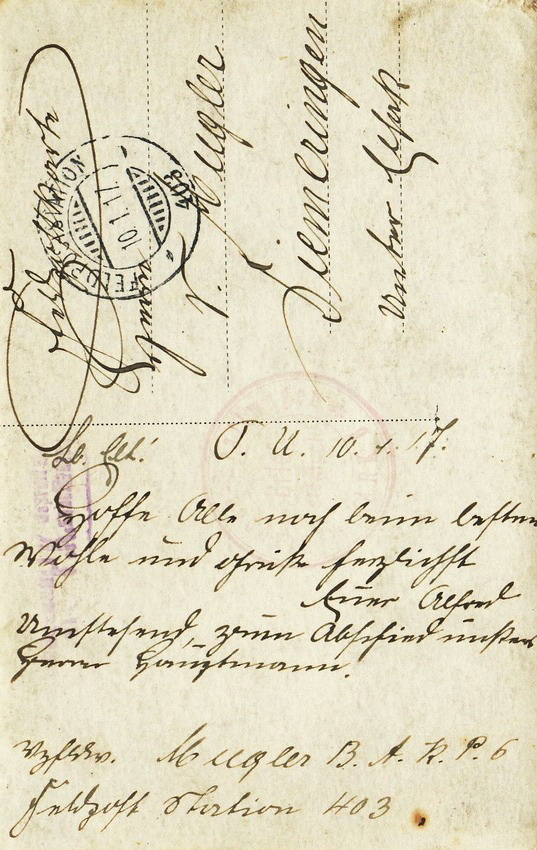 Feldpostkarte
Familie
J. Mugler
Diemeringen
Unter Elsaß
FELDPOSTSTATION
10.1.17.
403
Lb. Elt.! O. U. 10. 1. 17.
Hoffe Alle noch beim besten
Wohle und grüße herzlichst
Euer Alfred
Umstehend, zum Abschied unsers
Herrn Hauptmann.
Vzfldw. Mugler B. A. K. P. 6
Feldpost Station 403